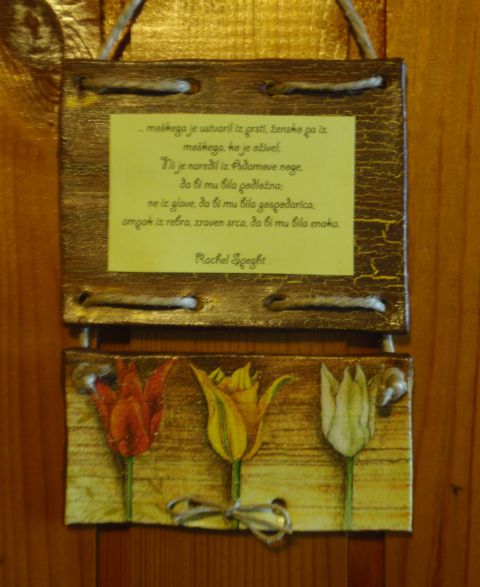 ... moškega je ustvaril iz prsti, žensko pa iz
moškega, ko je oživel;
Ni je naredil iz Adamove noge,
da bi mu bila podložna;
ne iz glave, da bi mu bila gospodarica,
ampak iz rebra, zraven srca, da bi mu bila enaka.
Rachel Speght